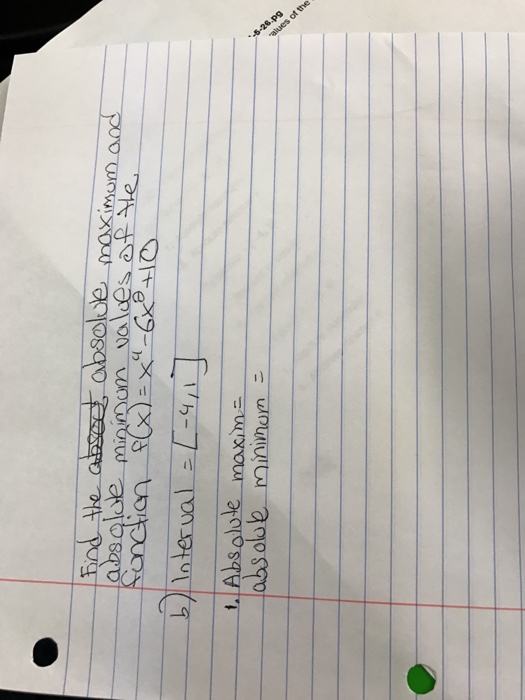 -5-26.pg
alues of the
Find the absolute maximum and
absolute minimum values of the
function f(x) = x⁴ - 6x² + 10
b) Interval = [-4, 1]
1. Absolute maxim =
absolute minimum =